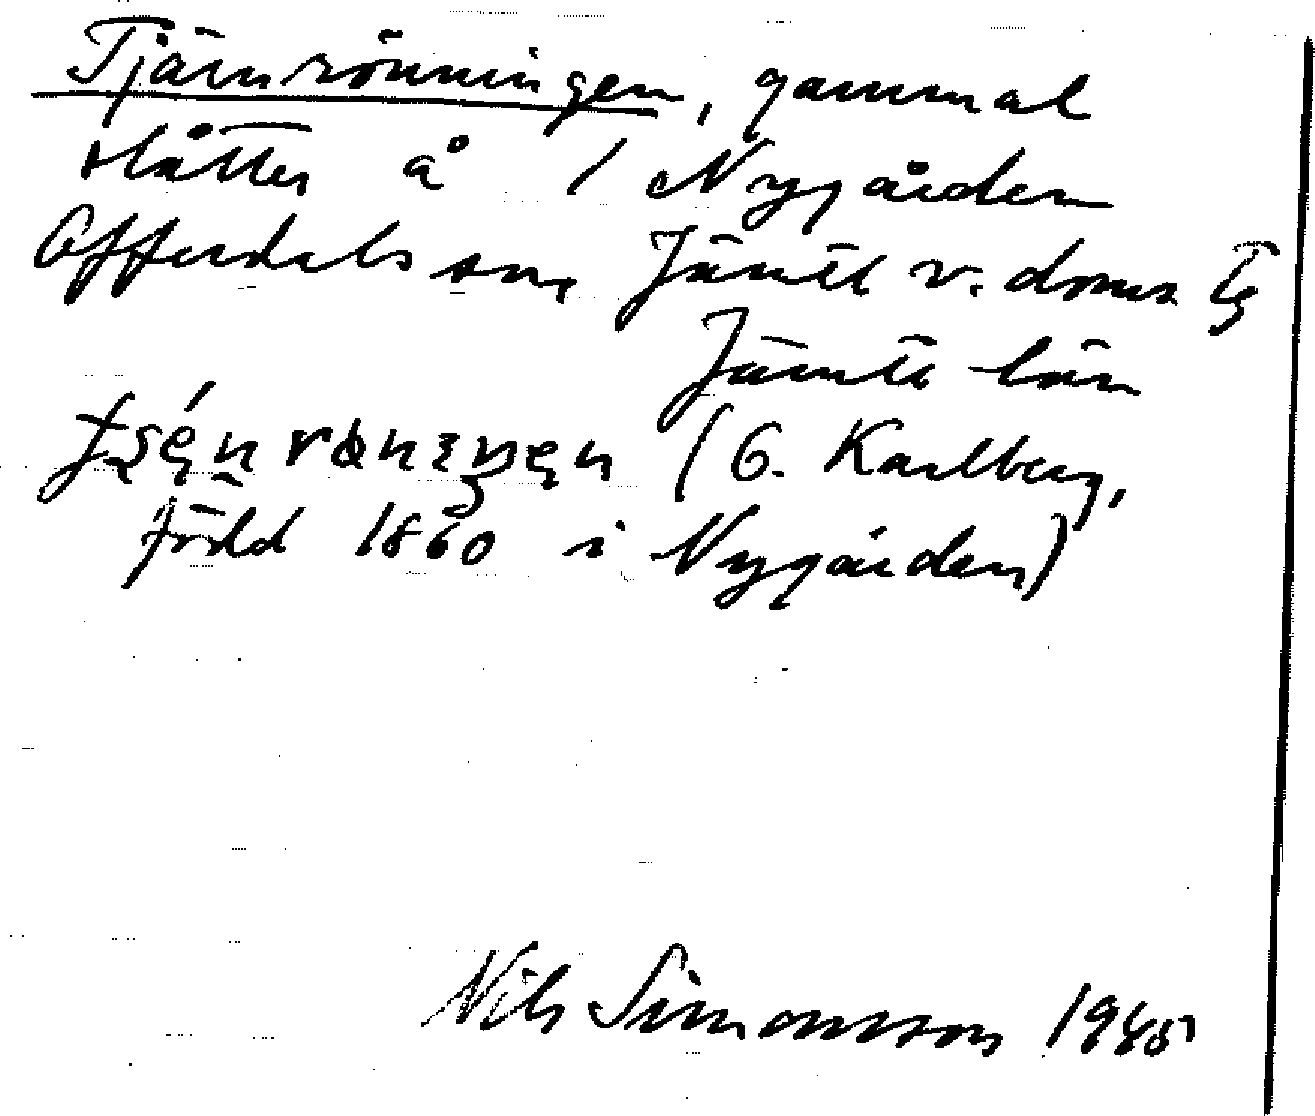 Tjärnrönningen, gammal
slåtter å 1 Nygården
Offerdals sn, Jämtl v. doms Tg
Jämtl län
(G. Karlberg,
född 1860 i Nygården)
Nils Simonsson 1945